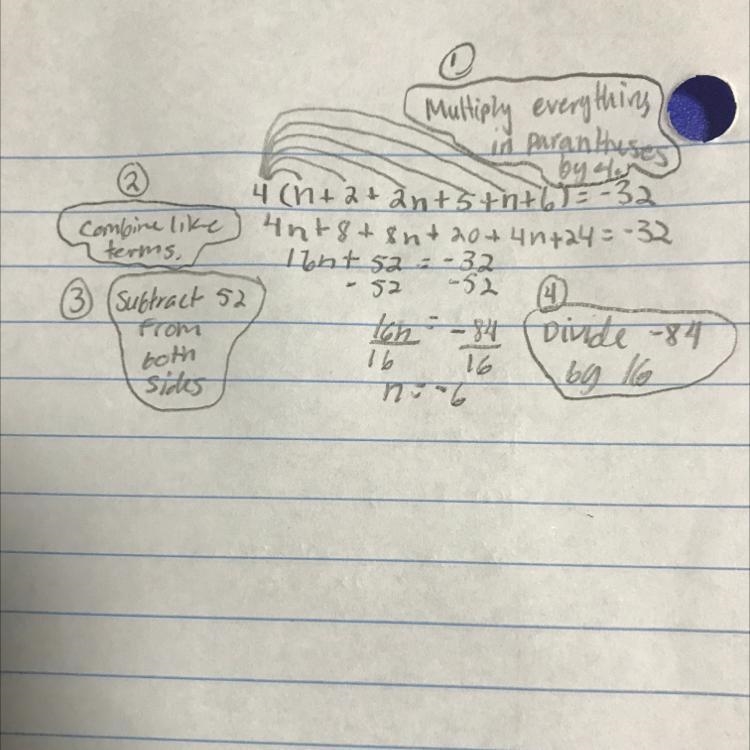 ①
Multiply everything
in parantheses
by 4.
②
Combine like
terms.
4(n+2+2n+5+n+6)=-32
4n+8+8n+20+4n+24=-32
16n+52=-32
-52 -52
③
Subtract 52
from
both
sides
16n = -84
16 16
n=-6
④
Divide -84
by 16